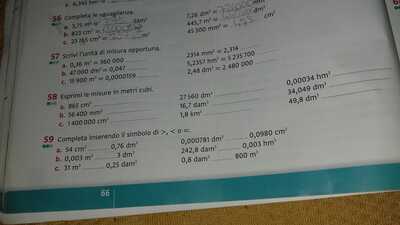 56 Completa le uguaglianze.
a. 3,75 m³ = dam³ 7,26 dm³ =
b. 825 cm³ = 445,7 m³ = dm³
c. 25 765 cm³ = 45 300 mm³ = cm³
57 Scrivi l'unità di misura opportuna.
a. 0,36 m³ = 360 000 2314 mm³ = 2,314
b. 47 000 dm³ = 0,047 5,2357 hm³ = 5 235 700
c. 15 900 m³ = 0,0000159 2,48 dm³ = 2 480 000
58 Esprimi le misure in metri cubi.
a. 865 cm³ 27 560 dm³ 0,00034 hm³
b. 36 400 mm³ 16,7 dam³ 34,049 dm³
c. 1 400 000 cm³ 1,8 km³ 49,8 dam³
59 Completa inserendo il simbolo di >, < o =.
a. 54 cm³ 0,76 dm³ 0,000781 dm³ 0,0980 cm³
b. 0,003 m³ 3 dm³ 242,8 dam³ 0,003 hm³
c. 31 m³ 0,25 dam³ 0,8 dam³ 800 m³
66